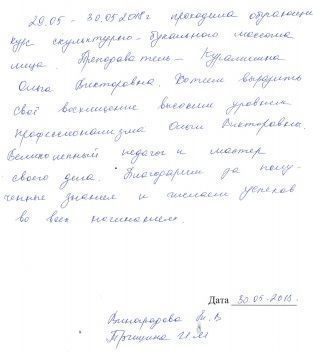 29.05 - 30.05 2018г проходила обучающий
курс скульптурно-букального массажа
лица. Преподаватель -
Ольга Викторовна. Хотим выразить
своё восхищение высоким уровнем
профессионализма Ольги Викторовны.
Великолепный педагог и мастер
своего дела. Благодарим за полу-
ченные знания и желаем успехов
во всех начинаниях.
Дата 30.05.2018.
Виноградова
Тришина И.М